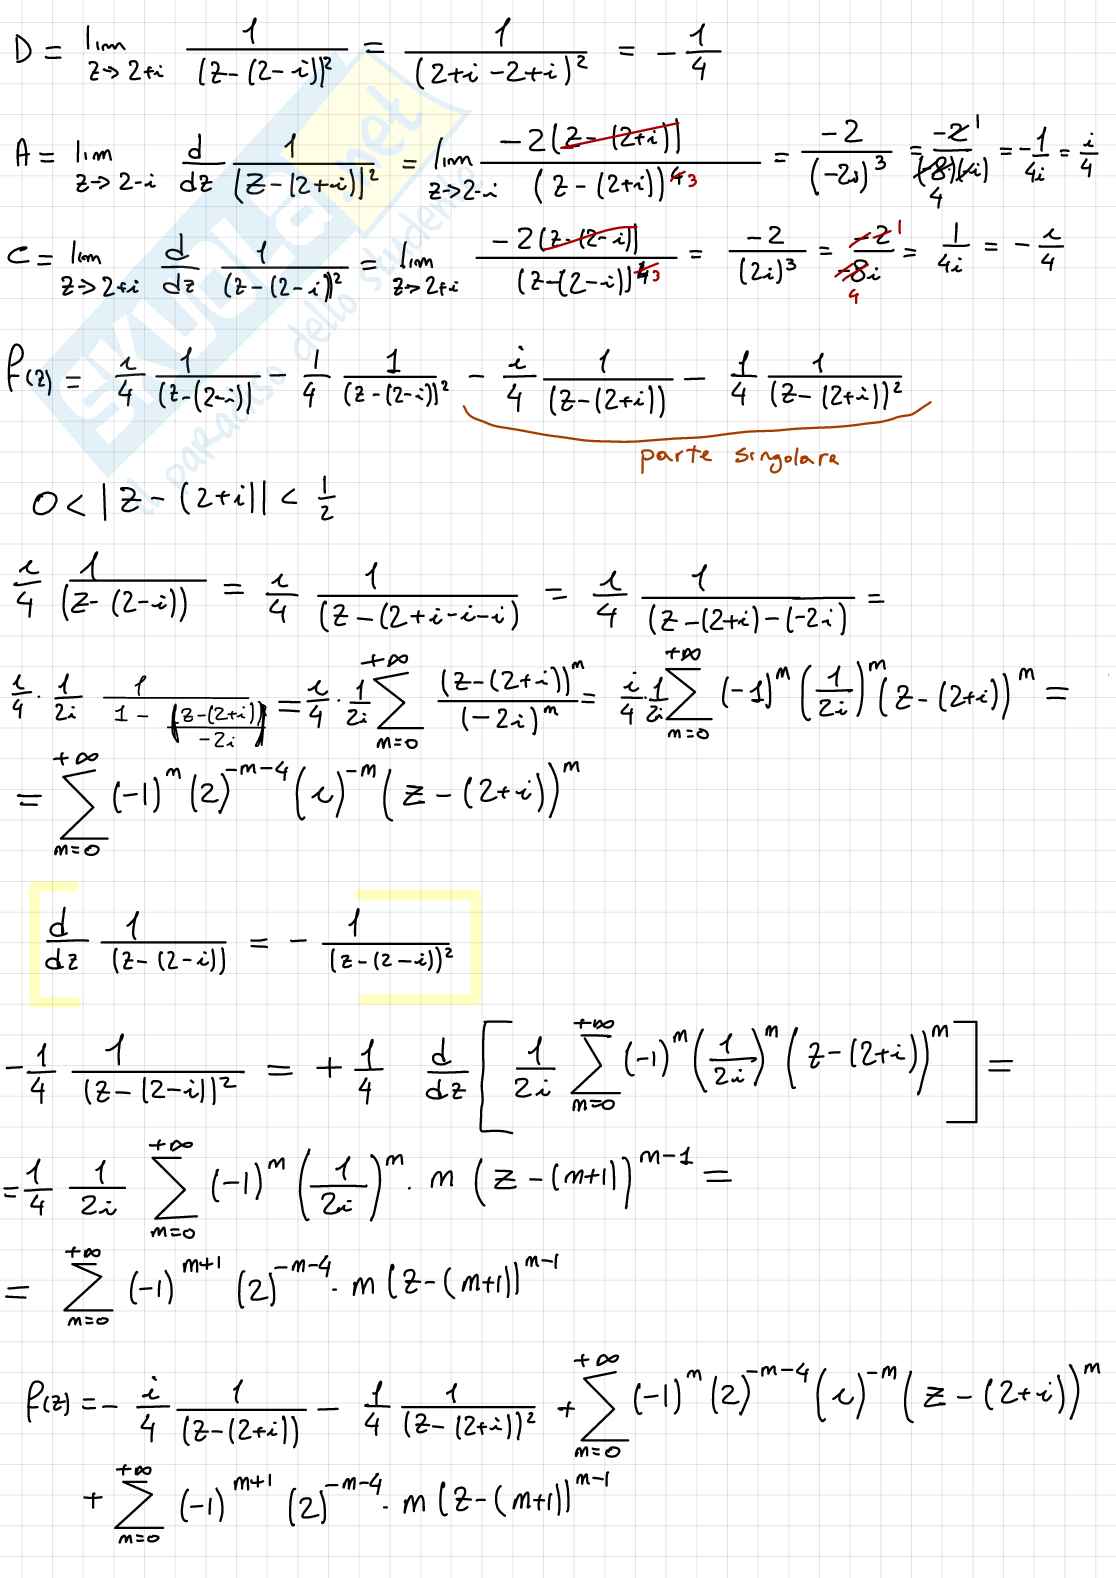 D = lim z→2+i 1/(z-(2-i))² = 1/(2+i-2+i)² = -1/4
A = lim z→2-i d/dz 1/(z-(2+i))² = lim z→2-i -2(z-(2+i))/(z-(2+i))^4 3 = -2/(-2i)³ = -2 1/(8)(i) 4 = -1/4i = i/4
C = lim z→2+i d/dz 1/(z-(2-i))² = lim z→2+i -2(z-(2-i))/(z-(2-i))^4 3 = -2/(2i)³ = -2 1/-8i 4 = 1/4i = -i/4
f(z) = i/4 1/(z-(2-i)) - 1/4 1/(z-(2-i))² - i/4 1/(z-(2+i)) - 1/4 1/(z-(2+i))²
parte singolare
0 < |z-(2+i)| < 1/2
i/4 1/(z-(2-i)) = i/4 1/(z-(2+i-i-i) = i/4 1/(z-(2+i)-(-2i) =
i/4 · 1/2i 1/(1 - (z-(2+i))/-2i) = i/4 · 1/2i ∑ m=0 +∞ (z-(2+i))^m/(-2i)^m = i/4 · 1/2i ∑ m=0 +∞ (-1)^m (1/2i)^m (z-(2+i))^m =
= ∑ m=0 +∞ (-1)^m (2)^-m-4 (i)^-m (z-(2+i))^m
d/dz 1/(z-(2-i)) = - 1/(z-(2-i))²
-1/4 1/(z-(2-i))² = +1/4 d/dz [1/2i ∑ m=0 +∞ (-1)^m (1/2i)^m (z-(2+i))^m] =
= 1/4 1/2i ∑ m=0 +∞ (-1)^m (1/2i)^m · m (z-(m+1))^m-1 =
= ∑ m=0 +∞ (-1)^m+1 (2)^-m-4 · m (z-(m+1))^m-1
f(z) = - i/4 1/(z-(2+i)) - 1/4 1/(z-(2+i))² + ∑ m=0 +∞ (-1)^m (2)^-m-4 (i)^-m (z-(2+i))^m
+ ∑ m=0 +∞ (-1)^m+1 (2)^-m-4 · m (z-(m+1))^m-1
SKUOLA.net
il paradiso dello studente